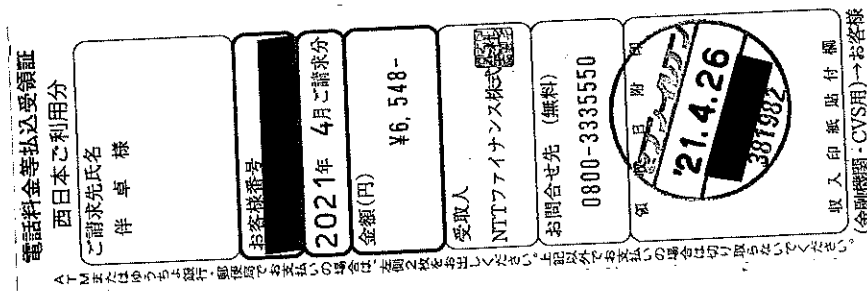 電話料金等払込受領証
西日本ご利用分
ご請求先氏名
伴 卓 様
お客様番号
2021年 4月ご請求分
金額(円)
¥6,548-
受取人
NTTファイナンス株式会社
お問合せ先 (無料)
0800-3335550
領収日附印
セブン-イレブン
'21.4.26
381982
収入印紙貼付欄
(金融機関・CVS用)→お客様
ATMまたはゆうちょ銀行・郵便局でお支払いの場合は、左側2枚をお出しください。上記以外でお支払いの場合は切り取らないでください。